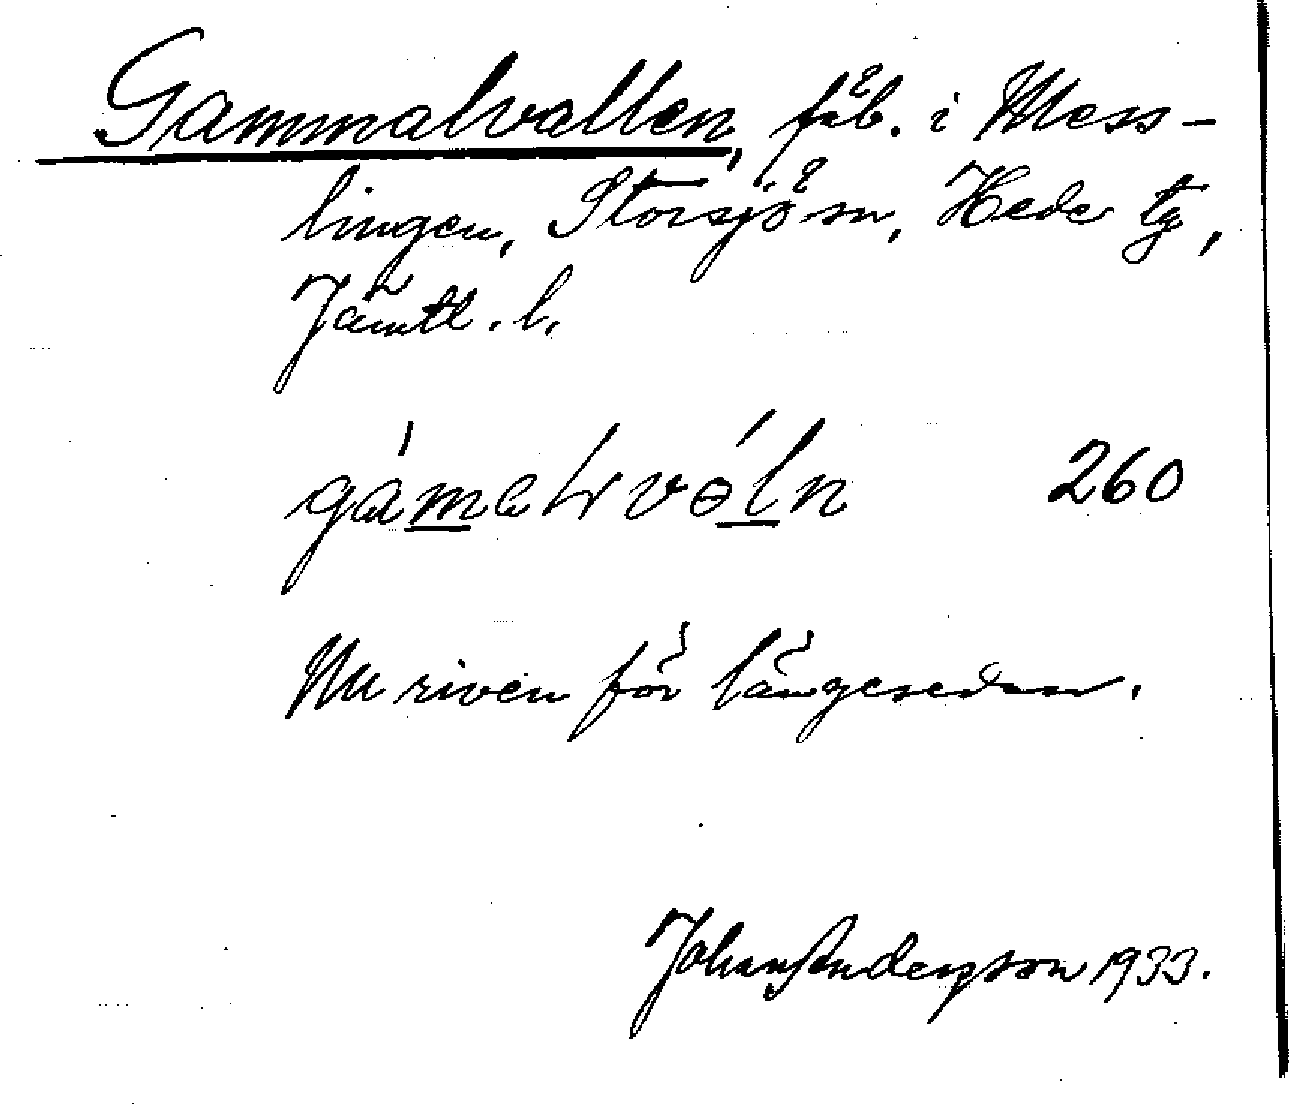 Gammalvallen, fäb. i Mess-
lingen, Storsjö sn, Hede tg,
Jämtl. l.
gámalvǿln 260
Nu riven för längesedan.
Johan Anderzson 1933.